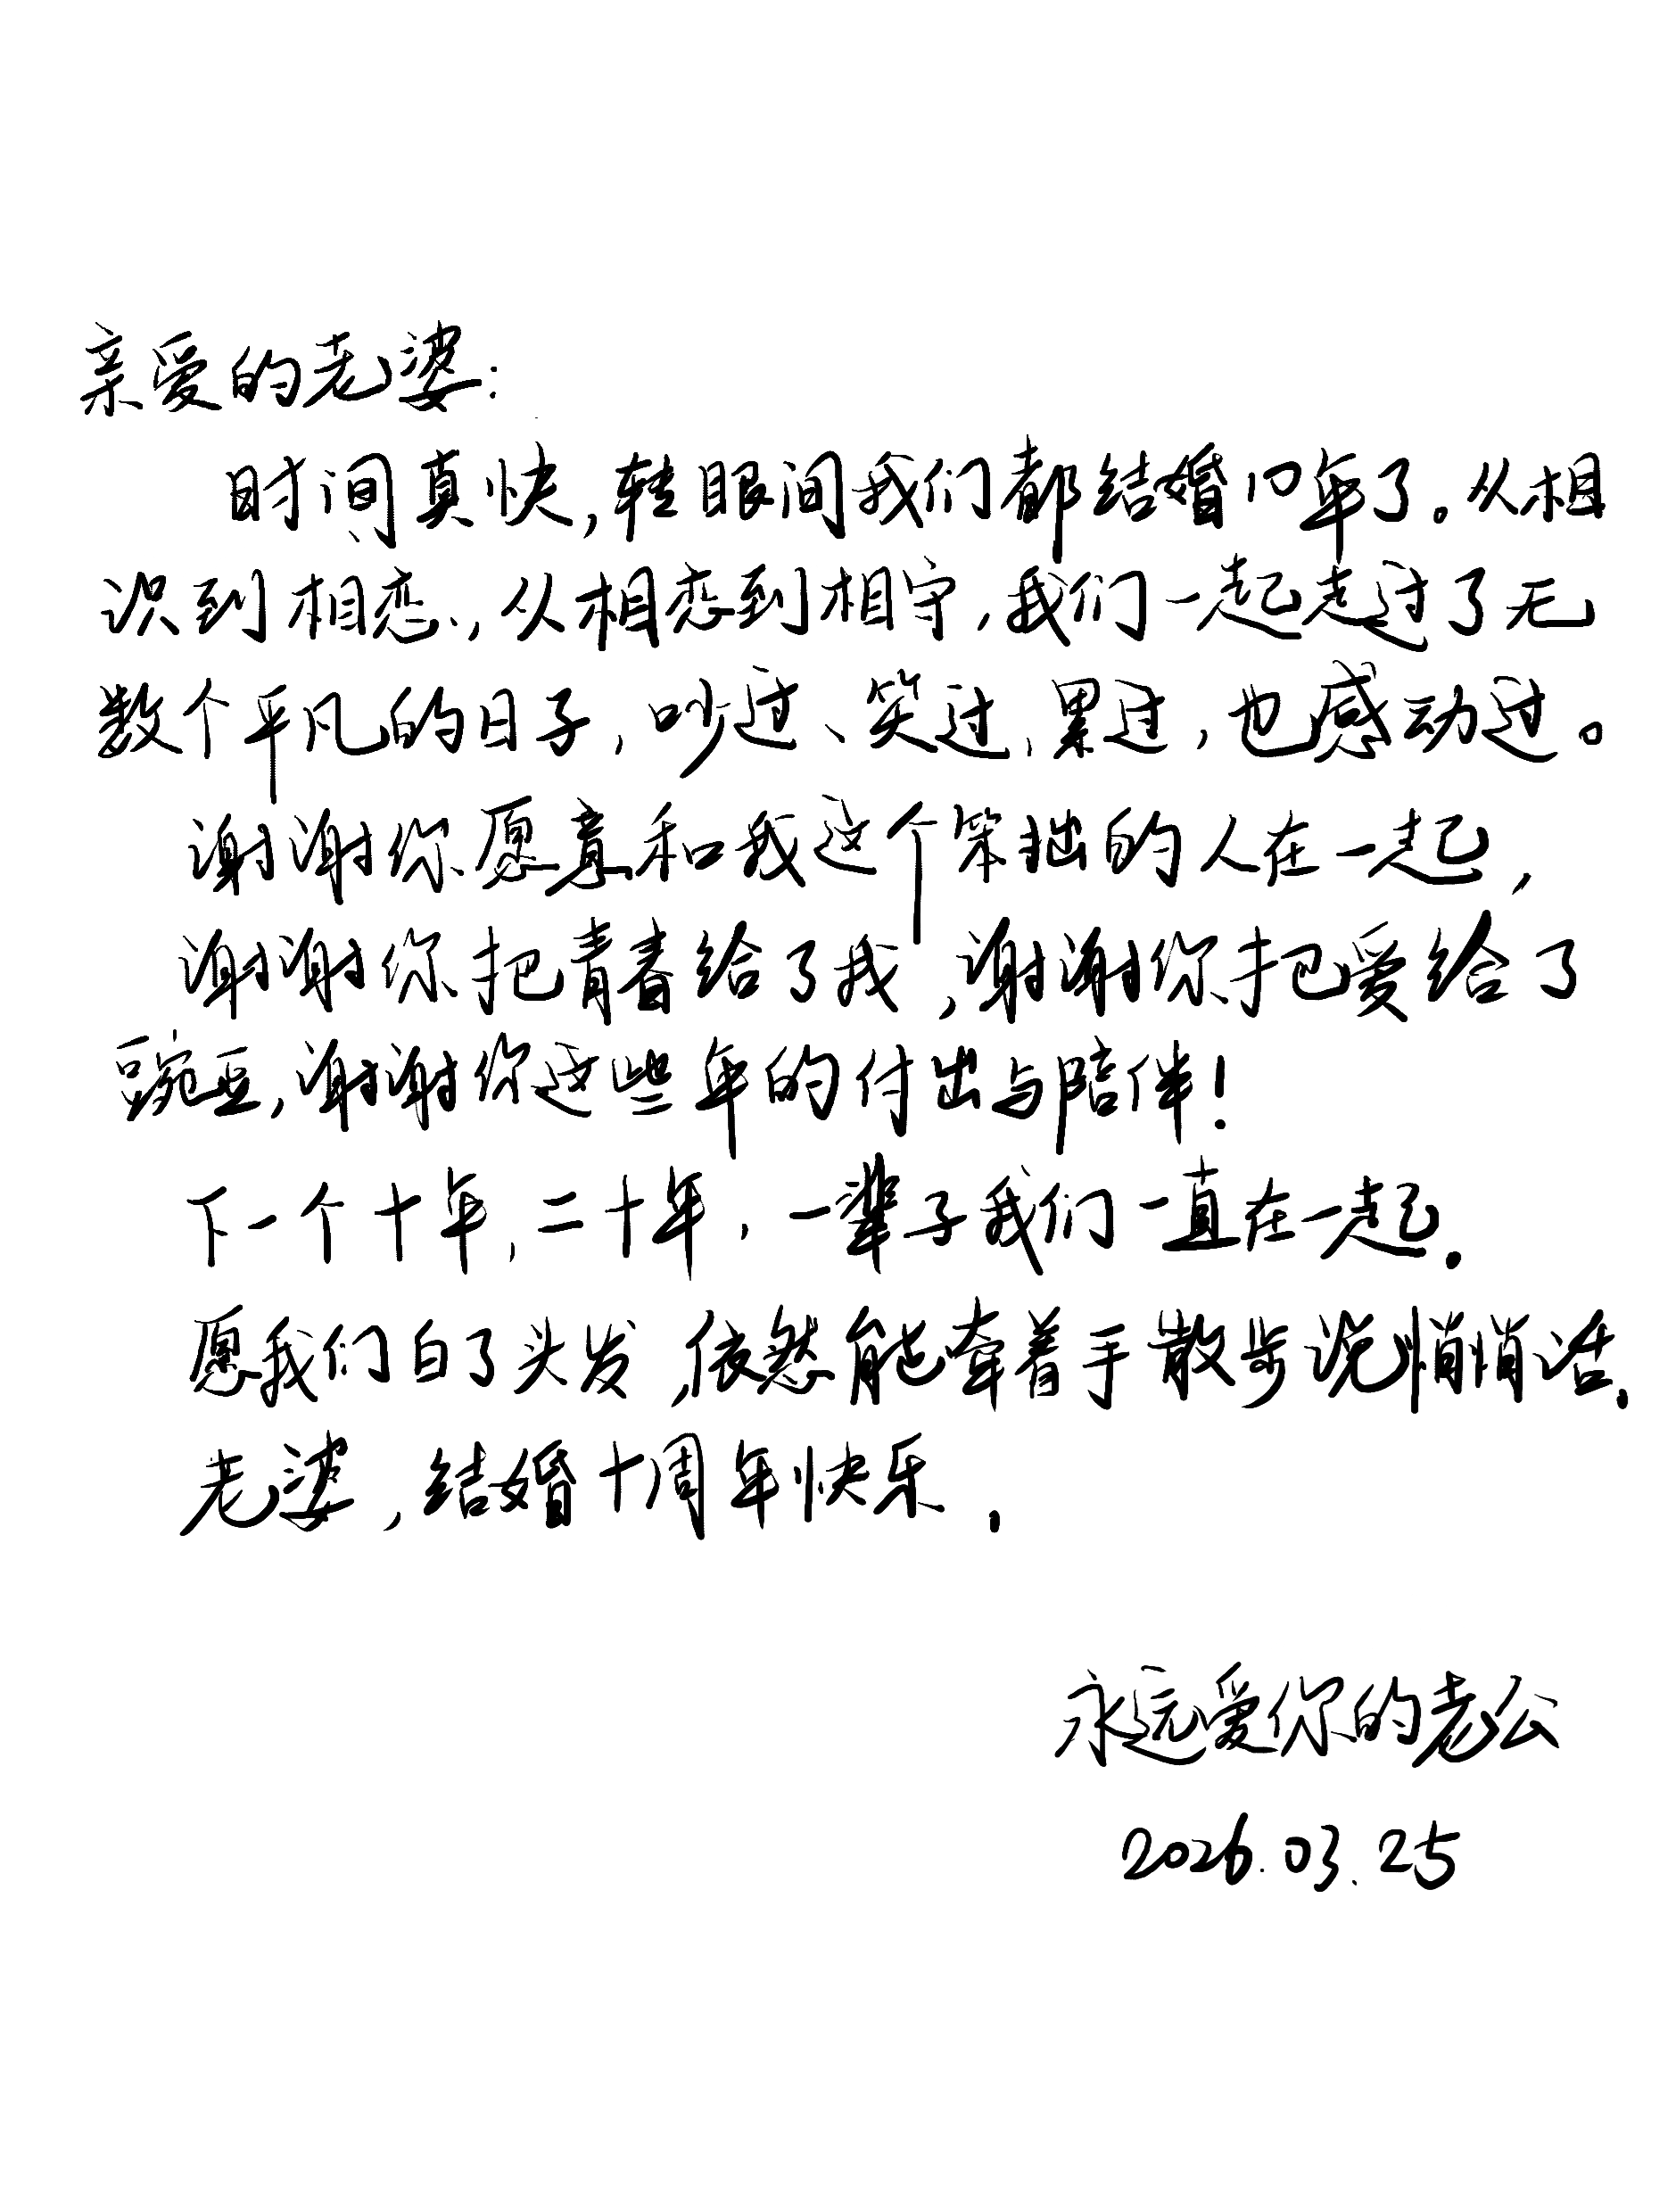 亲爱的老婆：
时间真快，转眼间我们都结婚10年了。从相
识到相恋，从相恋到相守，我们一起走过了无
数个平凡的日子，吵过、笑过，累过，也感动过。
谢谢你愿意和我这个笨拙的人在一起，
谢谢你把青春给了我，谢谢你把爱给了
豌豆，谢谢你这些年的付出与陪伴！
下一个十年，二十年，一辈子我们一直在一起.
愿我们白了头发，依然能牵着手散步说悄悄话.
老婆，结婚十周年快乐.
永远爱你的老公
2026.03.25